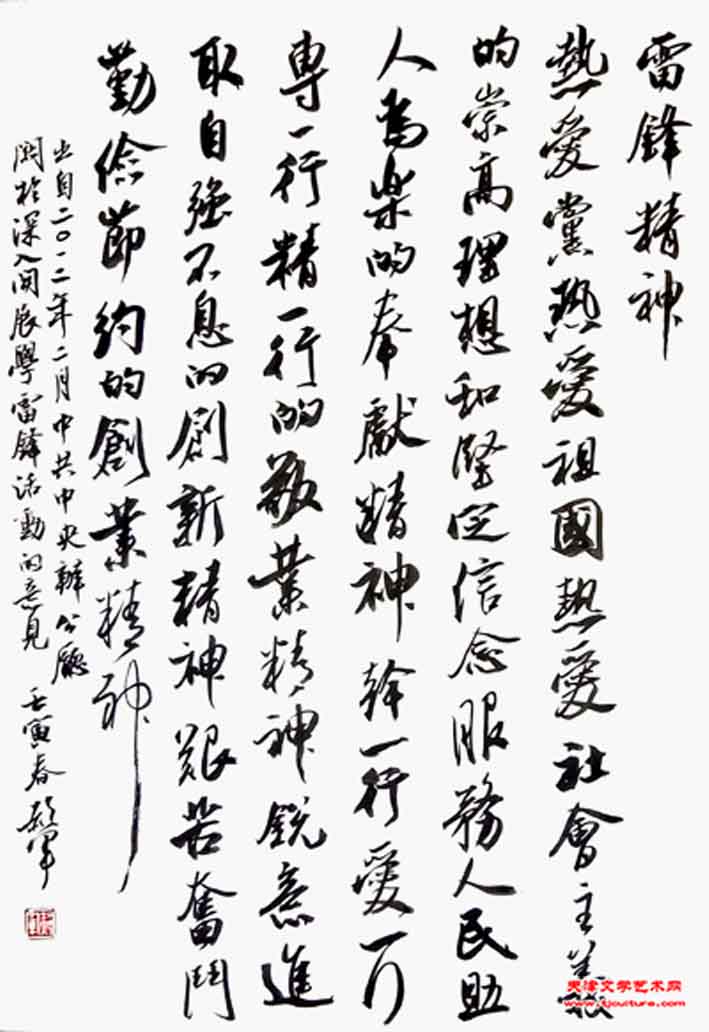 雷鋒精神
熱愛黨熱愛祖國熱愛社會主義
的崇高理想和堅定信念服務人民助
人為樂的奉獻精神幹一行愛一行
專一行精一行的敬業精神銳意進
取自強不息的創新精神艱苦奮鬥
勤儉節約的創業精神
出自二〇一二年二月中共中央辦公廳
關於深入開展學雷鋒活動的意見 壬寅春
天津文学艺术网
www.tjculture.com